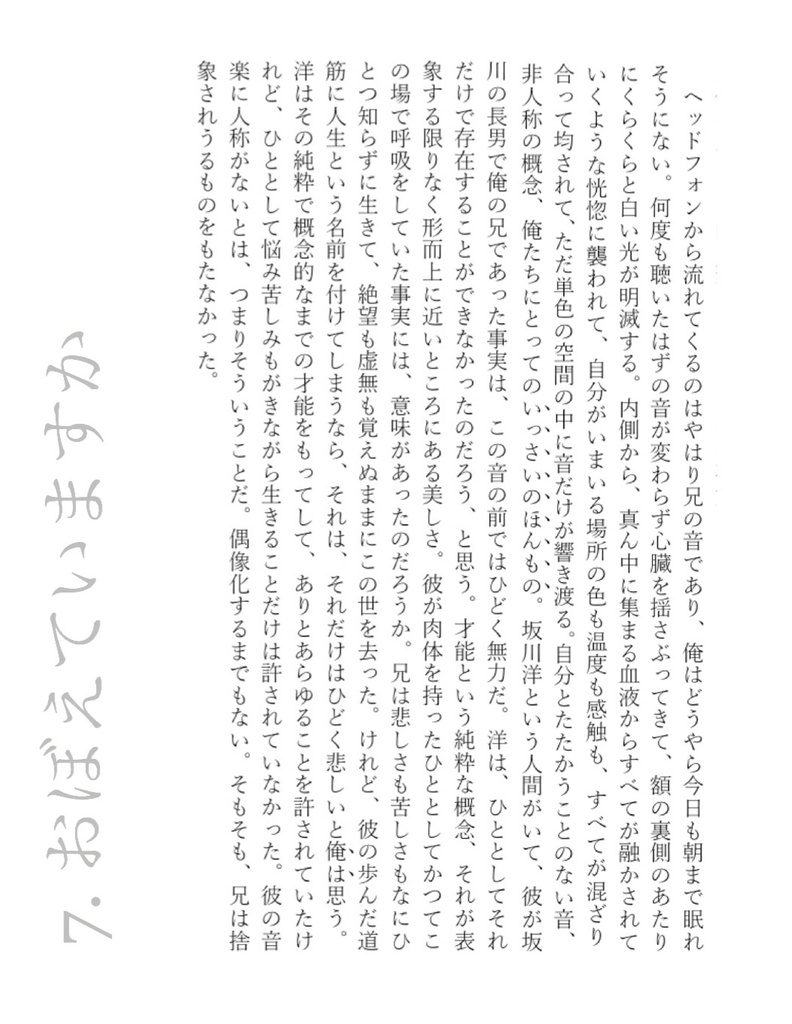 ヘッドフォンから流れてくるのはやはり兄の音であり、俺はどうやら今日も朝まで眠れ
そうにない。何度も聴いたはずの音が変わらず心臓を揺さぶってきて、額の裏側のあたり
にくらくらと白い光が明滅する。内側から、真ん中に集まる血液からすべてが融かされて
いくような恍惚に襲われて、自分がいまいる場所の色も温度も感触も、すべてが混ざり
合って均されて、ただ単色の空間の中に音だけが響き渡る。自分とたたかうことのない音、
非人称の概念、俺たちにとってのいっさいのほんもの。坂川洋という人間がいて、彼が坂
川の長男で俺の兄であった事実は、この音の前ではひどく無力だ。洋は、ひととしてそれ
だけで存在することができなかったのだろう、と思う。才能という純粋な概念、それが表
象する限りなく形而上に近いところにある美しさ。彼が肉体を持ったひととしてかつてこ
の場で呼吸をしていた事実には、意味があったのだろうか。兄は悲しさも苦しさもなにひ
とつ知らずに生きて、絶望も虚無も覚えぬままにこの世を去った。けれど、彼の歩んだ道
筋に人生という名前を付けてしまうなら、それは、それだけはひどく悲しいと俺は思う。
洋はその純粋で概念的なまでの才能をもってして、ありとあらゆることを許されていたけ
れど、ひととして悩み苦しみもがきながら生きることだけは許されていなかった。彼の音
楽に人称がないとは、つまりそういうことだ。偶像化するまでもない。そもそも、兄は捨
象されうるものをもたなかった。
7. おぼえていますか